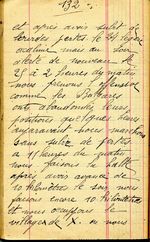 132.
et après avoir subit de
lourdes pertes le
au soir
alerte de nouveau le
25 à 2 heures du matin
nous prenons l'offensive
comme les
ont abandonnés leurs
positions quelques heures
auparavant nous marchons
sans subir de pertes
à 11 heures du
nous faisons la halte
après avoir avancé de
10 kilomètres le soir nous
faisons encore 10 kilomètres
et nous occupons le
village de X. ou nous